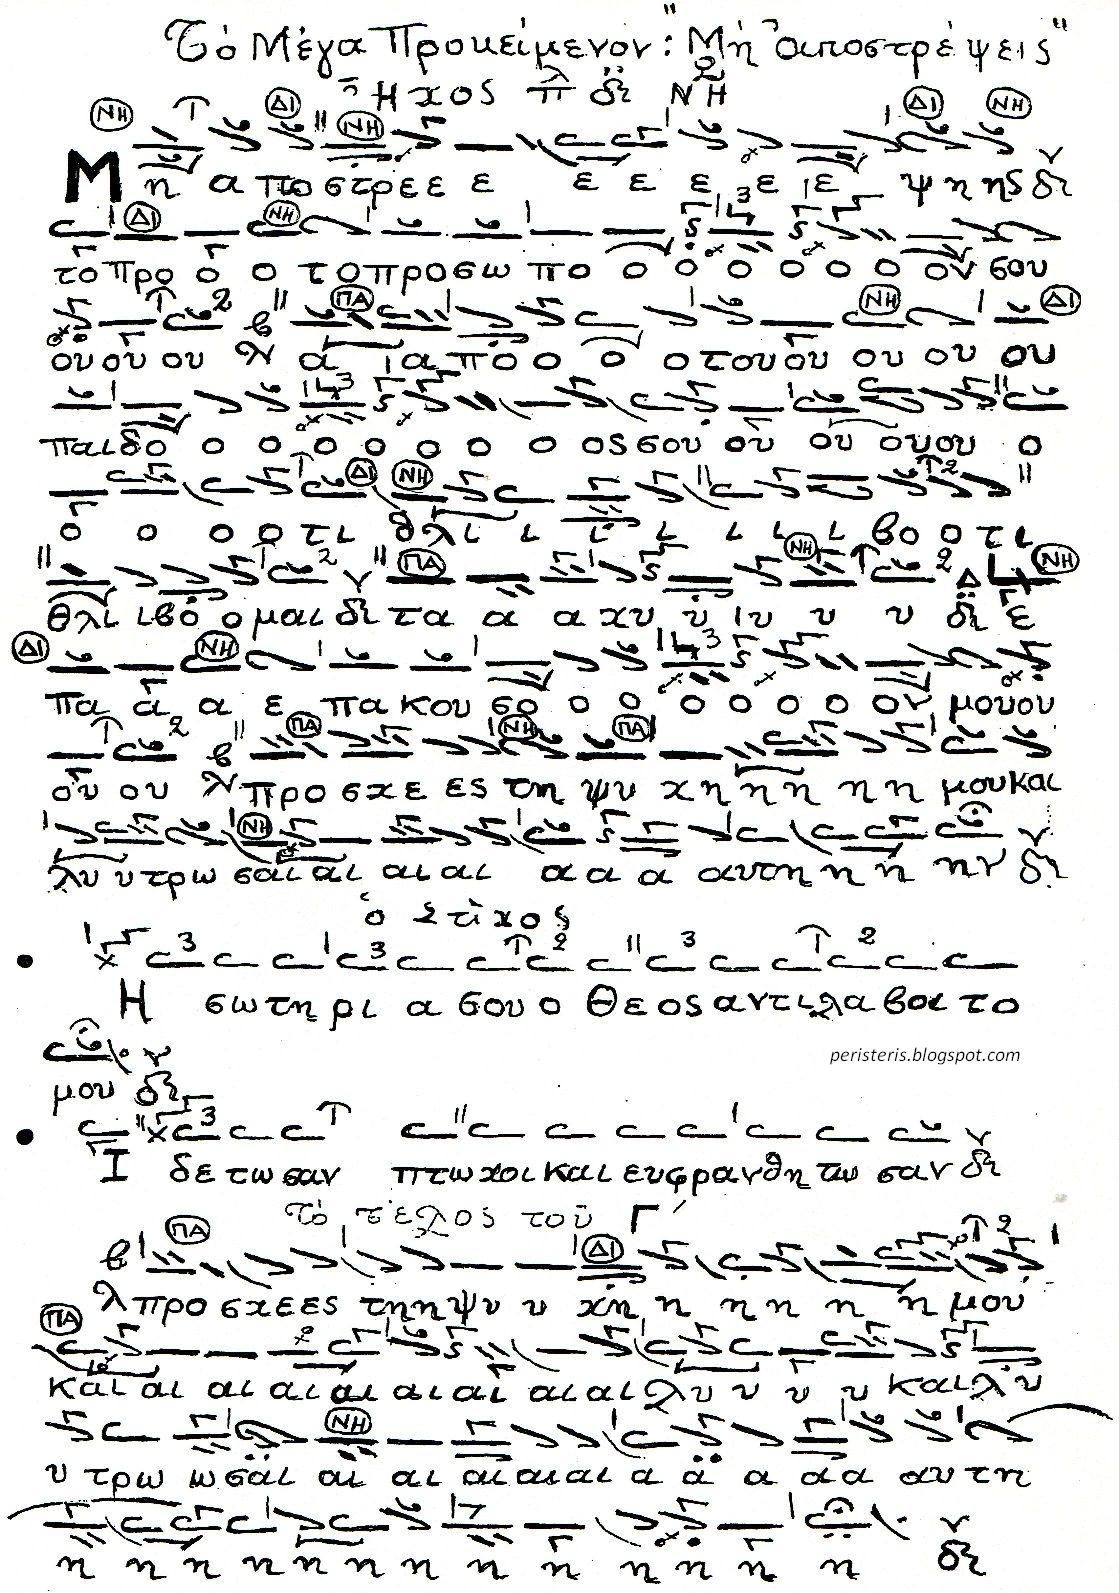 Τὸ Μέγα Προκείμενον: "Μὴ ἀποστρέψεις"
Ἦχος πλ δι ΝΗ
Μη α πο στρε ε ε ε ε ε ε ε ψη ης δι
το προ ο ο το προ σω πο ο ο ο ο ο ο ον σου
ου ου ου λ α α πο ο ο ο του ου ου ου ου
παι δο ο ο ο ο ο ο ο ος σου ου ου ου ου ο
ο ο ο ο τι θλι ι ι ι ι ι ι βο ο τι
θλι ι βο ο μαι δι τα α α χυ υ υ υ υ δι ε
πα α α ε πα κου σο ο ο ο ο ο ο ον μου ου
ου ου λ προ σχε ες τη ψυ χη η η η η μου και
λυ υ τρω σαι αι αι αι α α α αυτη η η ην δι
ὁ Στίχος
Η σω τη ρι α σου ο Θε ος αντιλα βοι το
peristeris.blogspot.com
μου δι
Ι δε τω σαν πτω χοι και ευφρανθη τω σαν δι
Τὸ τέλος τοῦ Γ΄
λ προ σχε ες τη η ψυ υ χη η η η η η μου
και αι αι αι αι αι αι αι αι λυ υ υ υ και λυ
υ τρω ω σαι αι αι αι αι αι α α α α α αυ τη
η η η η η η η η η η η η η δι